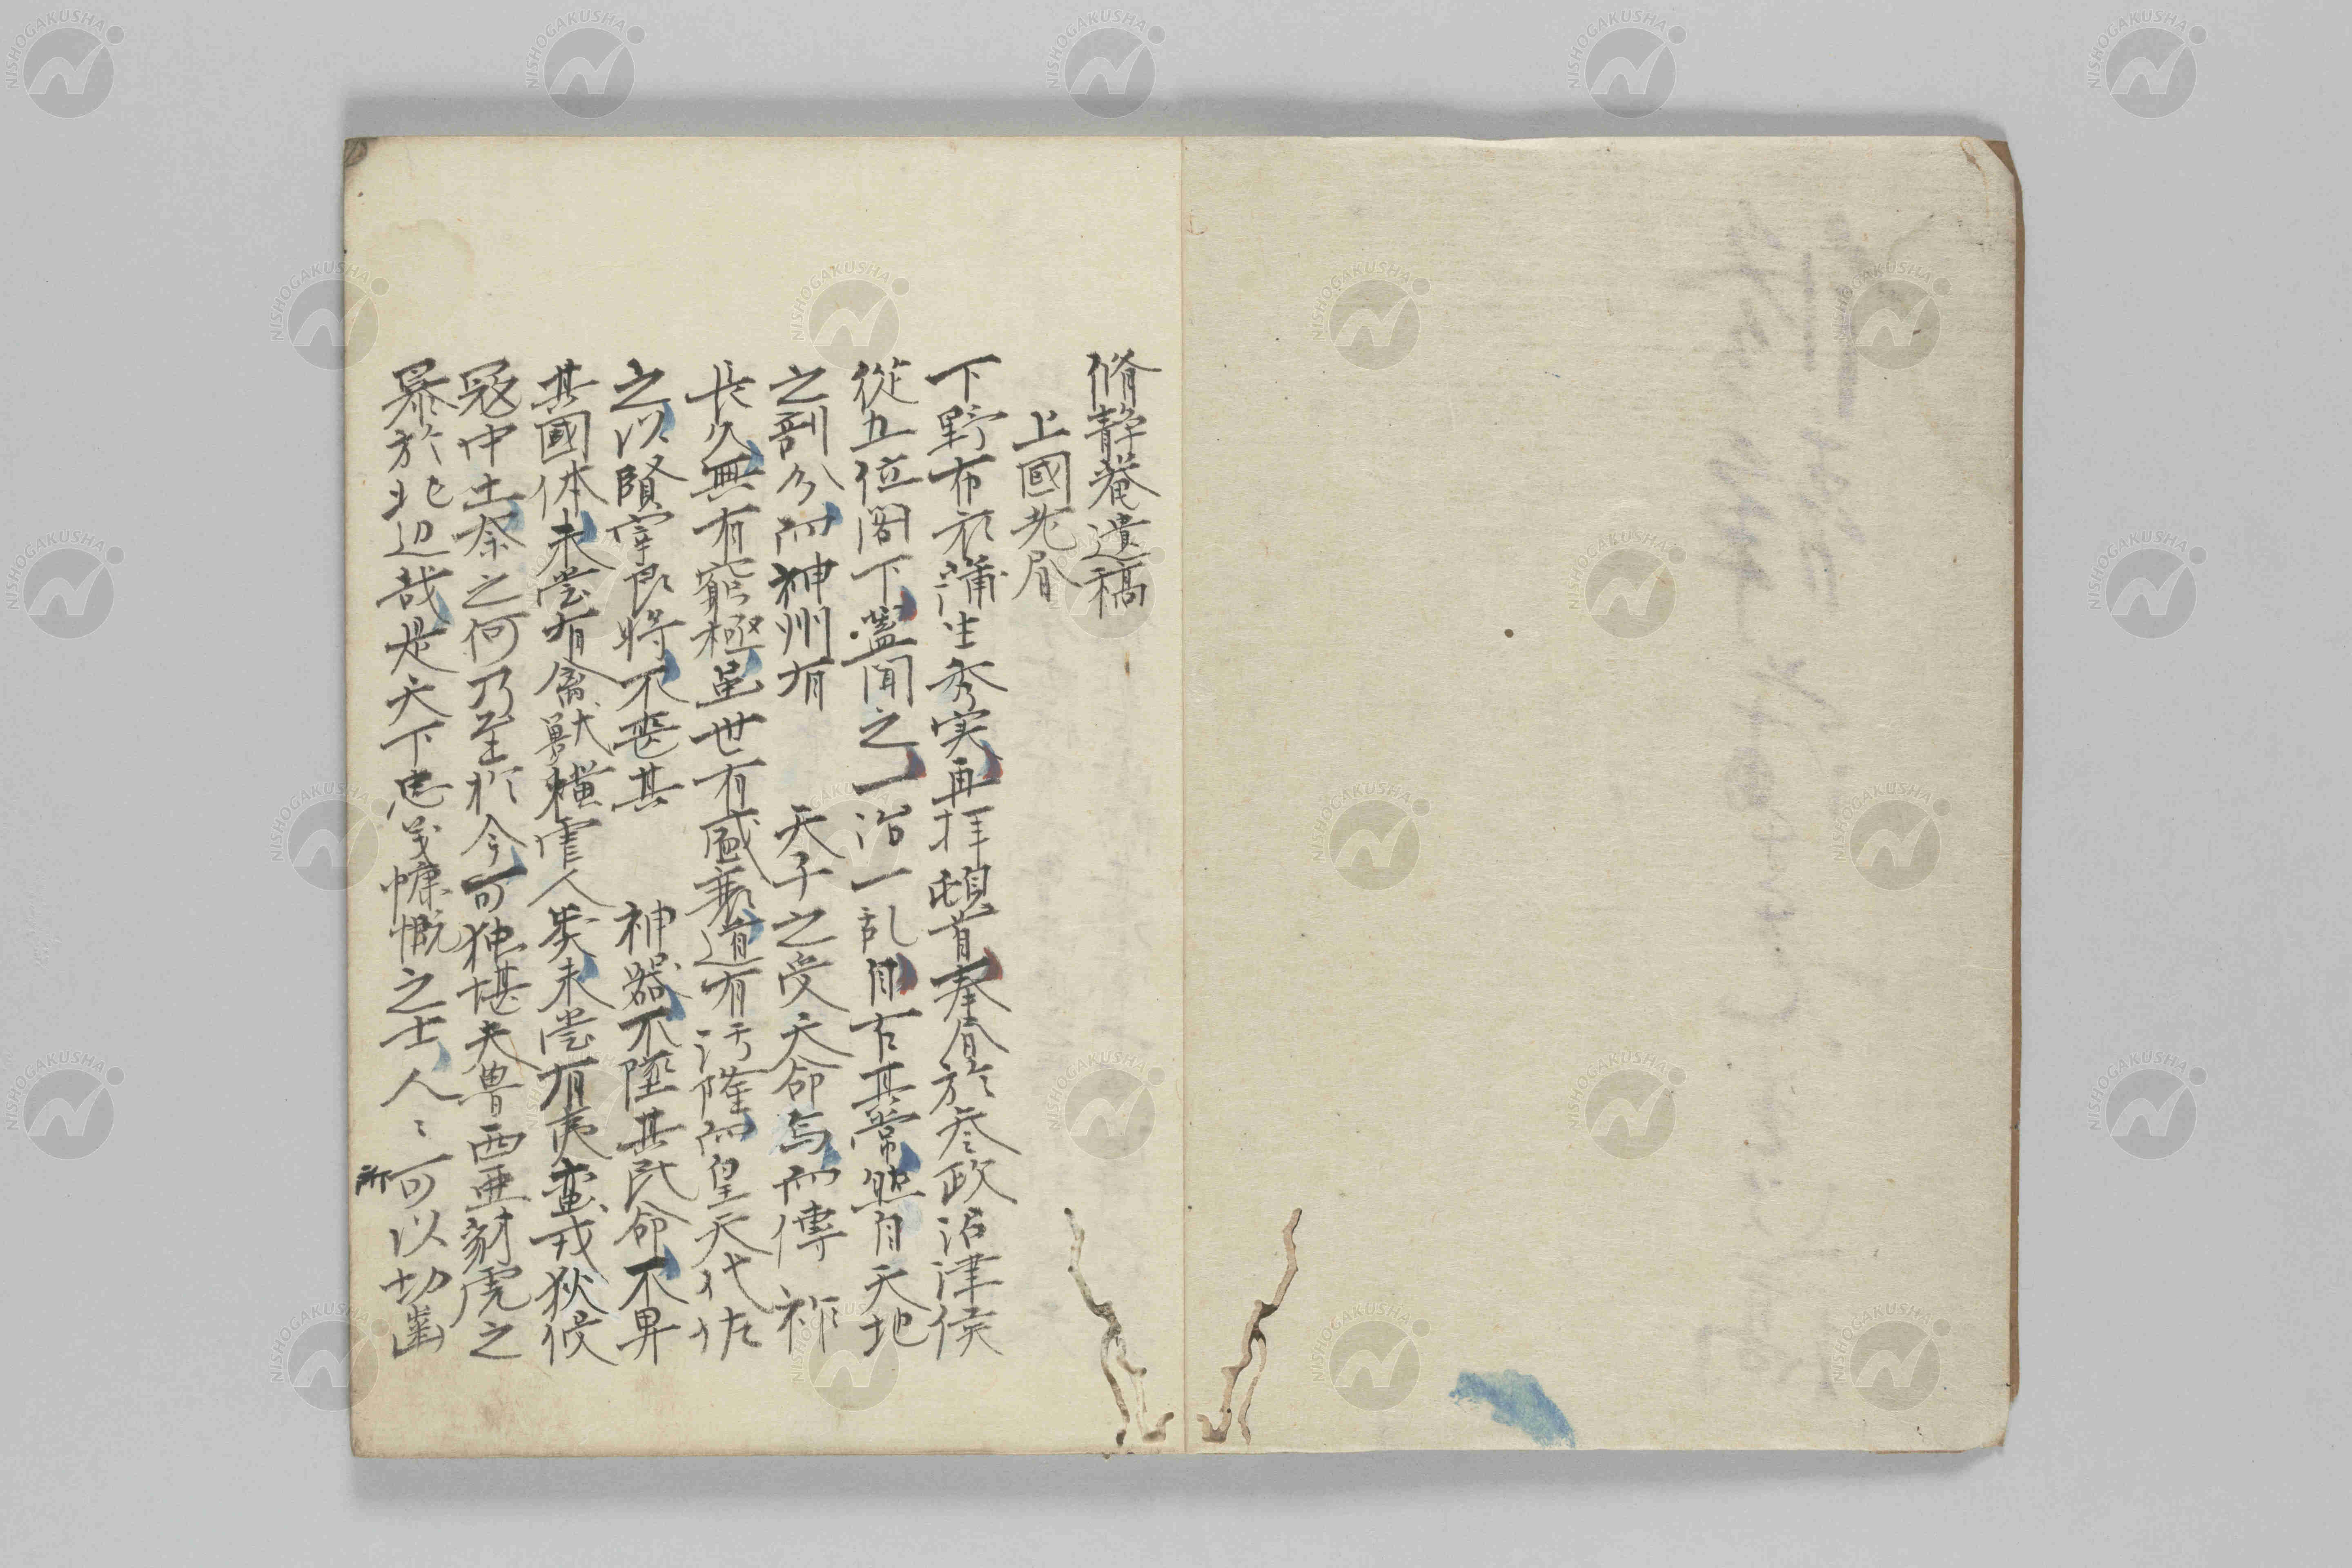 脩静菴遺稿
上國老眉
下野布衣蒲生秀実再拜頓首奉眉於参政沼津侯
從五位閤下蓋聞之一治一乱自古其常態自天地
之剖分而神州有 天子之受天命焉而傳 祚
長久無有窮極虽世有盛衰道有汚隆而皇天代佐
之以賢宰良将不喪其 神器不墜其民命不畀
其國体未嘗有禽獣横虐人类未嘗有夷蛮戎狄侵
寇中土奈之何乃至於今可独堪夫魯西亜豺虎之
暴於北辺哉是天下忠义慷慨之士人〻所可以切齒
NISHOGAKUSHA